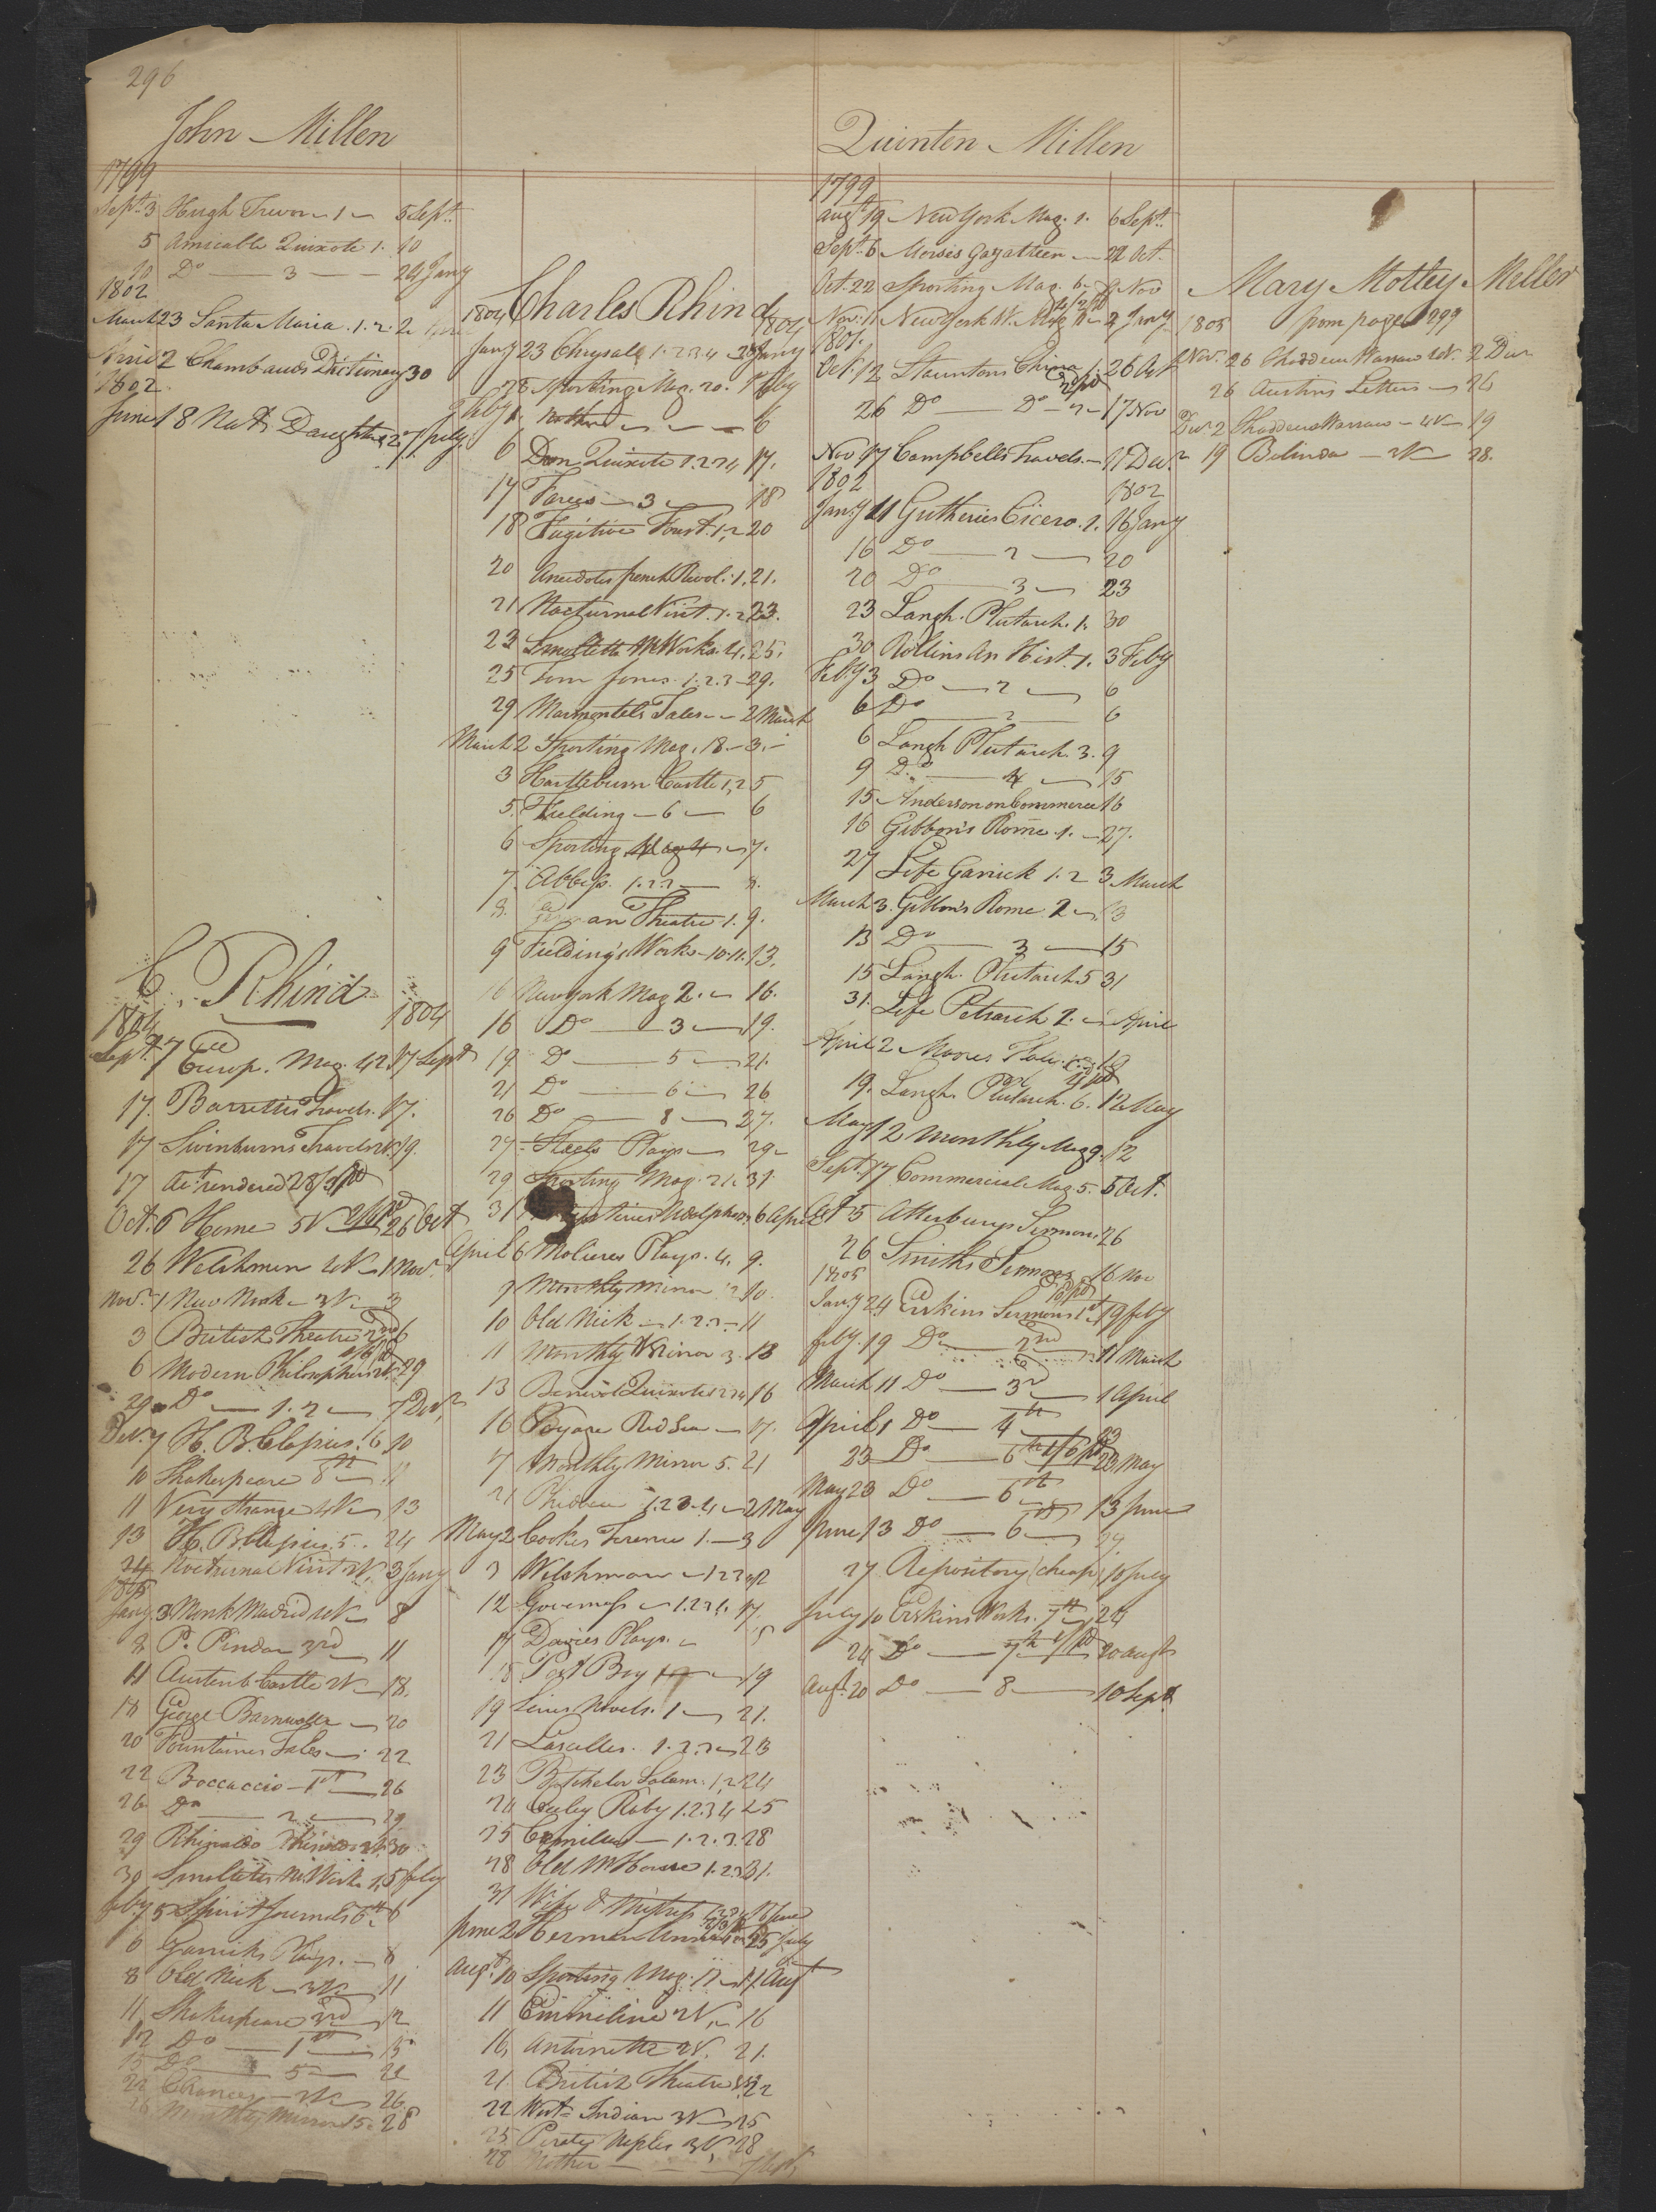 296
John Millen
1799
Sept. 3 Hugh Trevor - 1 - 5 Sept.
5 Amicable Quixote 1. 10
10 Do - 3 - 24 Jany
1802
March 23 Santa Maria . 1. 2. 2
April 2 Chambauds Dictionary 30
1802
June 18 Nat. Daughter 2 7 July
C. Rhind
1804 1804
Sept. 7 Europ. Mag. 42. 17 Sept
17. Barrettis Travels. 17.
17 Swinburns Travels 2V. 19.
17 Act. rendered 28/ pd
Oct. 6 Home 5V 26 Oct
26 Welshmen 4V - 1 Novr.
Novr. 1 New Monk - 3V - 3
3 British Theatre 23d 6
6 Modern Philosophers 29
29 Do - 1. 2 - 7 Decr.
Decr. 7 H. B. Clapius. 6 10
10 Shakespeare 8th - 11
11 Very Strange 4V - 13
13 H. B. Clapius. 5. 24
24 Nocturnal Visit 2V. 3 Jany
1805
Jany 3 Monk Madrid 4V - 8
8 P. Pindar 3rd 11
11 Austenb. Castle 2V - 18.
18 George Barnwell - 20
20 Fountaines Tales - 22
22 Boccaccio - 1st - 26
26 Do - 2 - 29
29 Rhinaldo Rhinaldini 30
30 Smolletts M. Works 1. 5 Feby
Feby. 5 Spirit Journals 6th 6
6 Garricks Plays. - 8
8 Old Nick - 3V - 11
11 Shakespeare 3rd - 12
12 Do - 1st - 15
15 Do - 5 - 22
22 Chances - 2V - 26
26 Monthly Mirror 15. 28
Charles Rhind
1804 1804
Jany 23 Chrysal 1. 2 3 4 28 Jany
28 Sporting Mag. 20. 1 Feby
Feby 1. Mother - - - 6
6 Don Quixote 1. 2 3 4 17.
17 Farces - 3 - 18
18 Fugitive Forest. 1, 2 20
20 Anecdotes french Revol. 1. 21.
21 Nocturnal Visit. 1. 2 23.
23 Smolletts M. Works. 4. 25.
25 Tom Jones. 1. 2. 3 - 29.
29 Marmontels Tales - - 2 March
March 2 Sporting Mag. 18. - 3. -
3 Hartlebourn Castle 1, 2 5
5. Fielding - 6 - 6
6 Sporting Mag 4 - 7.
7. Abbess. 1. 2 3 - 8.
8. German Theatre 1. 9.
9 Fielding's Works - 10. 11. 13.
16 New York Mag 2. - 16.
16 Do - 3 - 19.
19 Do - 5 - 21.
21 Do - 6 - 26
26 Do - 8 - 27.
27 Steels Plays - 29 -
29 Sporting Mag. 21. 31.
31 Mysteries Udolpho 6 April
April 6 Molieres Plays. 4. 9.
9 Monthly Mirror 2 10.
10 Old Nick - 1. 2. 3 - 11
11 Monthly Mirror 3. 13
13 Benevol Quixote 1 2 3 4 16
16 Voyage Red Sea - 17.
17 Monthly Mirror 5. 21
21 Phedora 1. 2 3. 4 - 2 May
May 2 Cookes Terence 1. - 3
3 Welshman - 1 2 3 4 12
12 Governess - 1. 2 3 4 17.
17 Davies Plays. -
18 Post Boy - 19
19 Lewis Novels. 1 - 21.
21 Lascelles. 1. 2. 3 - 23
23 Batchelor Salam. 1, 2 24
24 Cicely Raby 1. 2. 3 4 25
25 Camilla - 1. 2. 3. 28
28 Old M. House 1. 2 3 31.
31 Wife & Mistress 1 2 3 4 2 June
June 2 Herman Unna 25 July
Augt. 10 Sporting Mag. 17 - 11 Augt
11 Emmeline 2V, - 16
16, Antoinette 2V. 21.
21. British Theatre 22
22 West Indian 3V - 25
25 Pirate Naples 3V, 28
28 Mother - - - Sept.
Quinten Millen
1799
augt. 19 New York Mag. 1. 6 Sept.
Sept. 6 Morses Gazatteer - 22 Oct.
Oct. 22 Sporting Mag. 6 - 8 Nov
Nov. 11 New York W. Mag 2 Jany
1801.
Oct. 12 Stauntons China 1. 26 Oct
26 Do - Do - 2 - 17 Nov
Nov 17 Campbells Travels. - 11 Decr.
1802 1802
Jany 11 Gutheries Cicero. 1. 16 Jany
16 Do - 2 - 20
20 Do - 3 - 23
23 Langh. Plutarch. 1. 30
30 Rollins An Hist. 1. 3 Feby
Feby 3 Do - 2 - 6
6 Do - 2 - 6
6 Langh Plutarch. 3. 9
9 Do - 4 - 15
15 Anderson on Commerce 16
16 Gibbon's Rome. 1. - 27.
27 Life Garrick 1. 2 3 March
March 3. Gibbon's Rome. 2 - 13
13 Do - 3 - 15
15 Langh. Plutarch 5 31
31. Life Petrarch 2. - April
April 2 Moores Italy. 1. 2 19
19. Langh. Plutarch. 6. 12 May
May 12 Monthly Mag 9. 12
Sept. 17 Commercial Mag. 5. 5 Oct.
Oct 5 Atterburys Sermons 26
26 Smiths Sermons 16 Nov
1805
Jany 24 Erskins Sermons 1st 19 feby
feby. 19 Do - 2nd 11 March
March 11 Do - 3d 1 April
April 1 Do - 4th 23
23 Do - 6th 1/6 pd 23 May
May 23 Do - 6th 13 June
June 13 Do - 6 - 27
27 Repository (cheap) 10 July
July 10 Erskins Works. 7th 24
24 Do - 7th pd 20 augt
Augt. 20 Do - 8 - 10 Sept.
Mary Motley Miller
1805 from page 299
Nov. 26 Thaddeus Warsaw 2V. 2 Decr
26 Austins Letters - 26
Decr 2 Thaddeus Warsaw - 4V - 19
19 Belinda - 2V - 28.